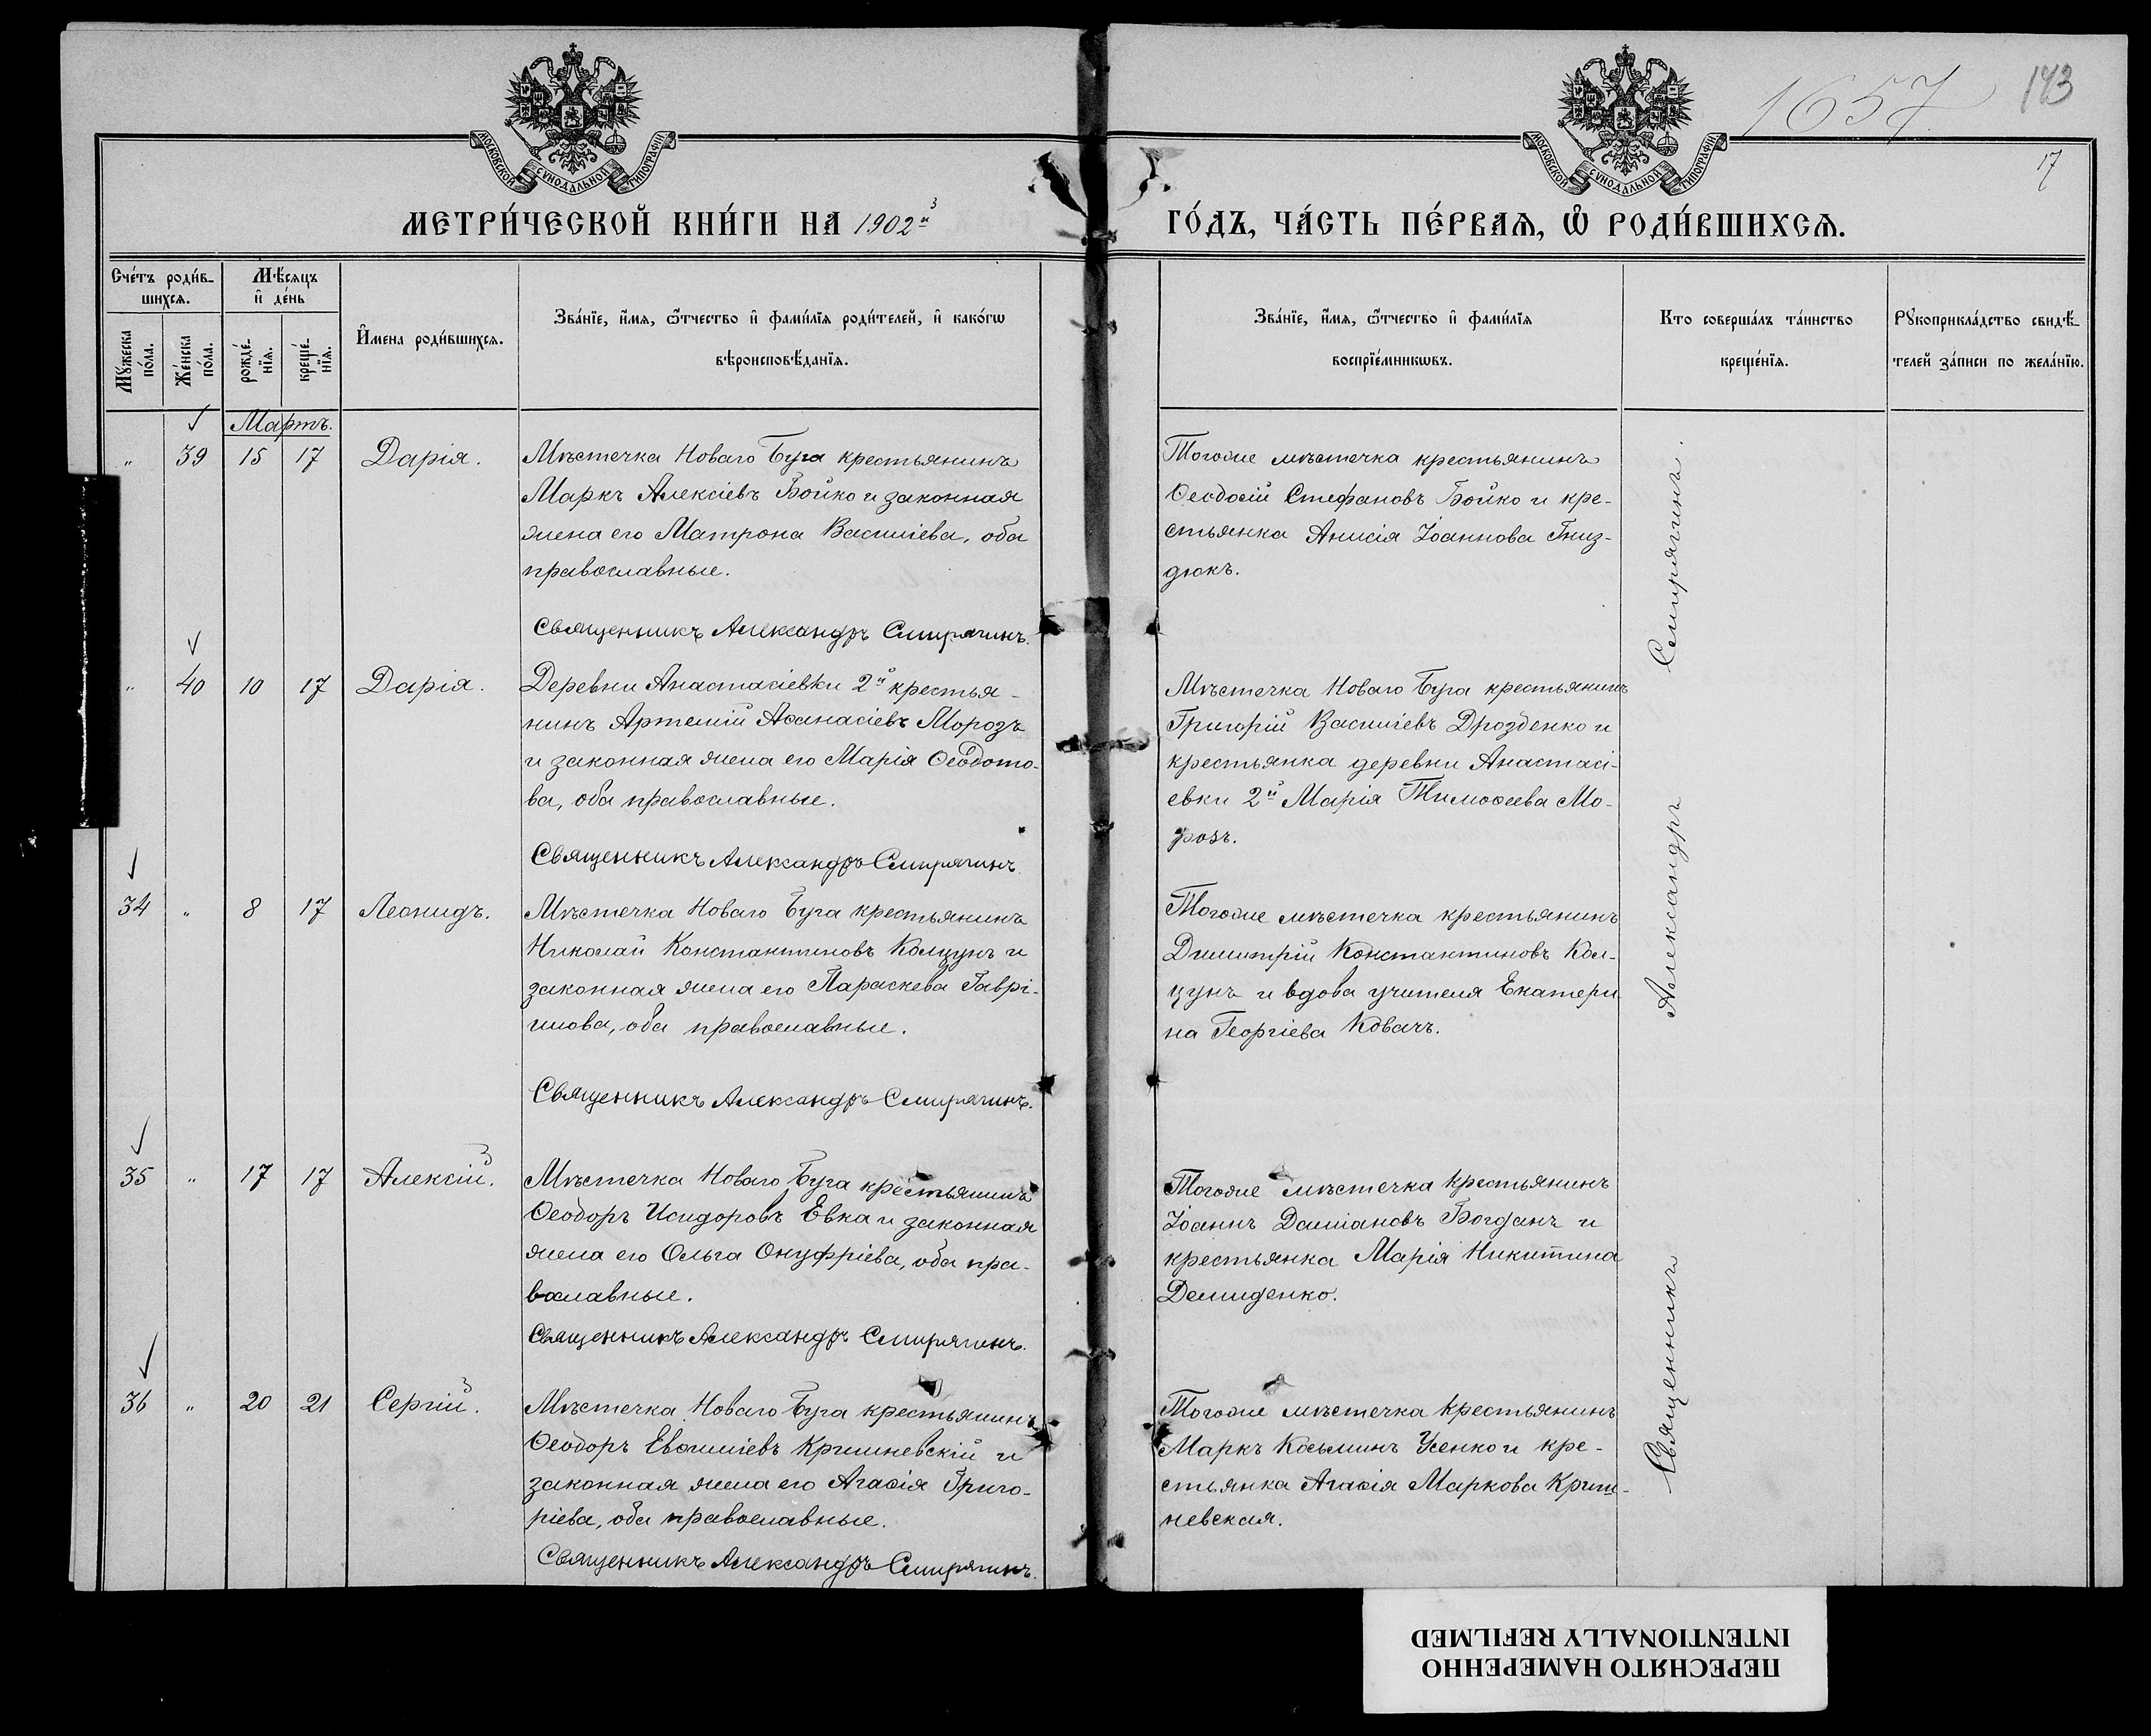 1657
143
17
МОСКОВСКОЙ СѴНОДАЛЬНОЙ ТИПОГРАФІИ
МОСКОВСКОЙ СѴНОДАЛЬНОЙ ТИПОГРАФІИ
МЕТРИ́ЧЕСКОЙ КНИ́ГИ НА 1902й
ГО́ДЪ, ЧА́СТЬ ПЕ́РВАѦ, Ѡ҆ РОДИ́ВШИХСѦ.
Сче́тъ роди́в-
шихсѧ.
Мꙋ́жеска по́ла.
Же́нска по́ла.
Мѣ́сѧцъ
и҆ де́нь
рожде́-нїѧ.
креще́-нїѧ.
И҆мена роди́вшихсѧ.
Зва́нїе, и҆́мѧ, ѻ҆́тчество и҆ фами́лїѧ роди́телей, и҆ како́гѡ
вѣроисповѣ́данїѧ.
Зва́нїе, и҆́мѧ, ѻ҆́тчество и҆ фами́лїѧ
воспрїе́мникѡвъ.
Кто соверша́лъ та́инство
креще́нїѧ.
Рꙋкоприкла́дство свидѣ́-
телей за́писи по жела́нїю.
Мартъ.
" 39 15 17 Дарія.
Мѣстечка Новаго Буга крестьянинъ
Маркъ Алексіевъ Бойко и законная
жена его Матрона Василіева, оба
православные.
Священникъ Александръ Смирягинъ.
Тогоже мѣстечка крестьянинъ
Ѳеодосій Стефановъ Бойко и кре-
стьянка Анисія Іоаннова Гниз-
дюкъ.
" 40 10 17 Дарія.
Деревни Анастасіевки 2й крестья-
нинъ Артемій Аѳанасіевъ Морозъ
и законная жена его Марія Ѳеодото-
ва, оба православные.
Священникъ Александръ Смирягинъ
Мѣстечка Новаго Буга крестьянинъ
Григорій Василіевъ Дрозденко и
крестьянка деревни Анастасі-
евки 2й Марія Тимоѳеева Мо-
розъ.
34 " 8 17 Леонидъ.
Мѣстечка Новаго Буга крестьянинъ
Николай Константиновъ Колцунъ и
законная жена его Параскева Гаврі-
илова, оба православные.
Священникъ Александръ Смирягинъ.
Тогоже мѣстечка крестьянинъ
Димитрій Константиновъ Кол-
цунъ и вдова учителя Екатери-
на Георгіева Ковачъ.
35 " 17 17 Алексій.
Мѣстечка Новаго Буга крестьянинъ
Ѳеодоръ Исидоровъ Евка и законная
жена его Ольга Онуфріева, оба пра-
вославные.
Священникъ Александръ Смирягинъ.
Тогоже мѣстечка крестьянинъ
Іоаннъ Даміановъ Богданъ и
крестьянка Марія Никитина
Демиденко.
36 " 20 21 Сергій.
Мѣстечка Новаго Буга крестьянинъ
Ѳеодоръ Евѳиміевъ Кришневскій и
законная жена его Агаѳія Григо-
ріева, оба православные.
Священникъ Александръ Смирягинъ.
Тогоже мѣстечка крестьянинъ
Маркъ Косьминъ Усенко и кре-
стьянка Агаѳія Маркова Криш-
невская.
Священникъ Александръ Смирягинъ.
ПЕРЕСНЯТО НАМЕРЕННО
INTENTIONALLY REFILMED